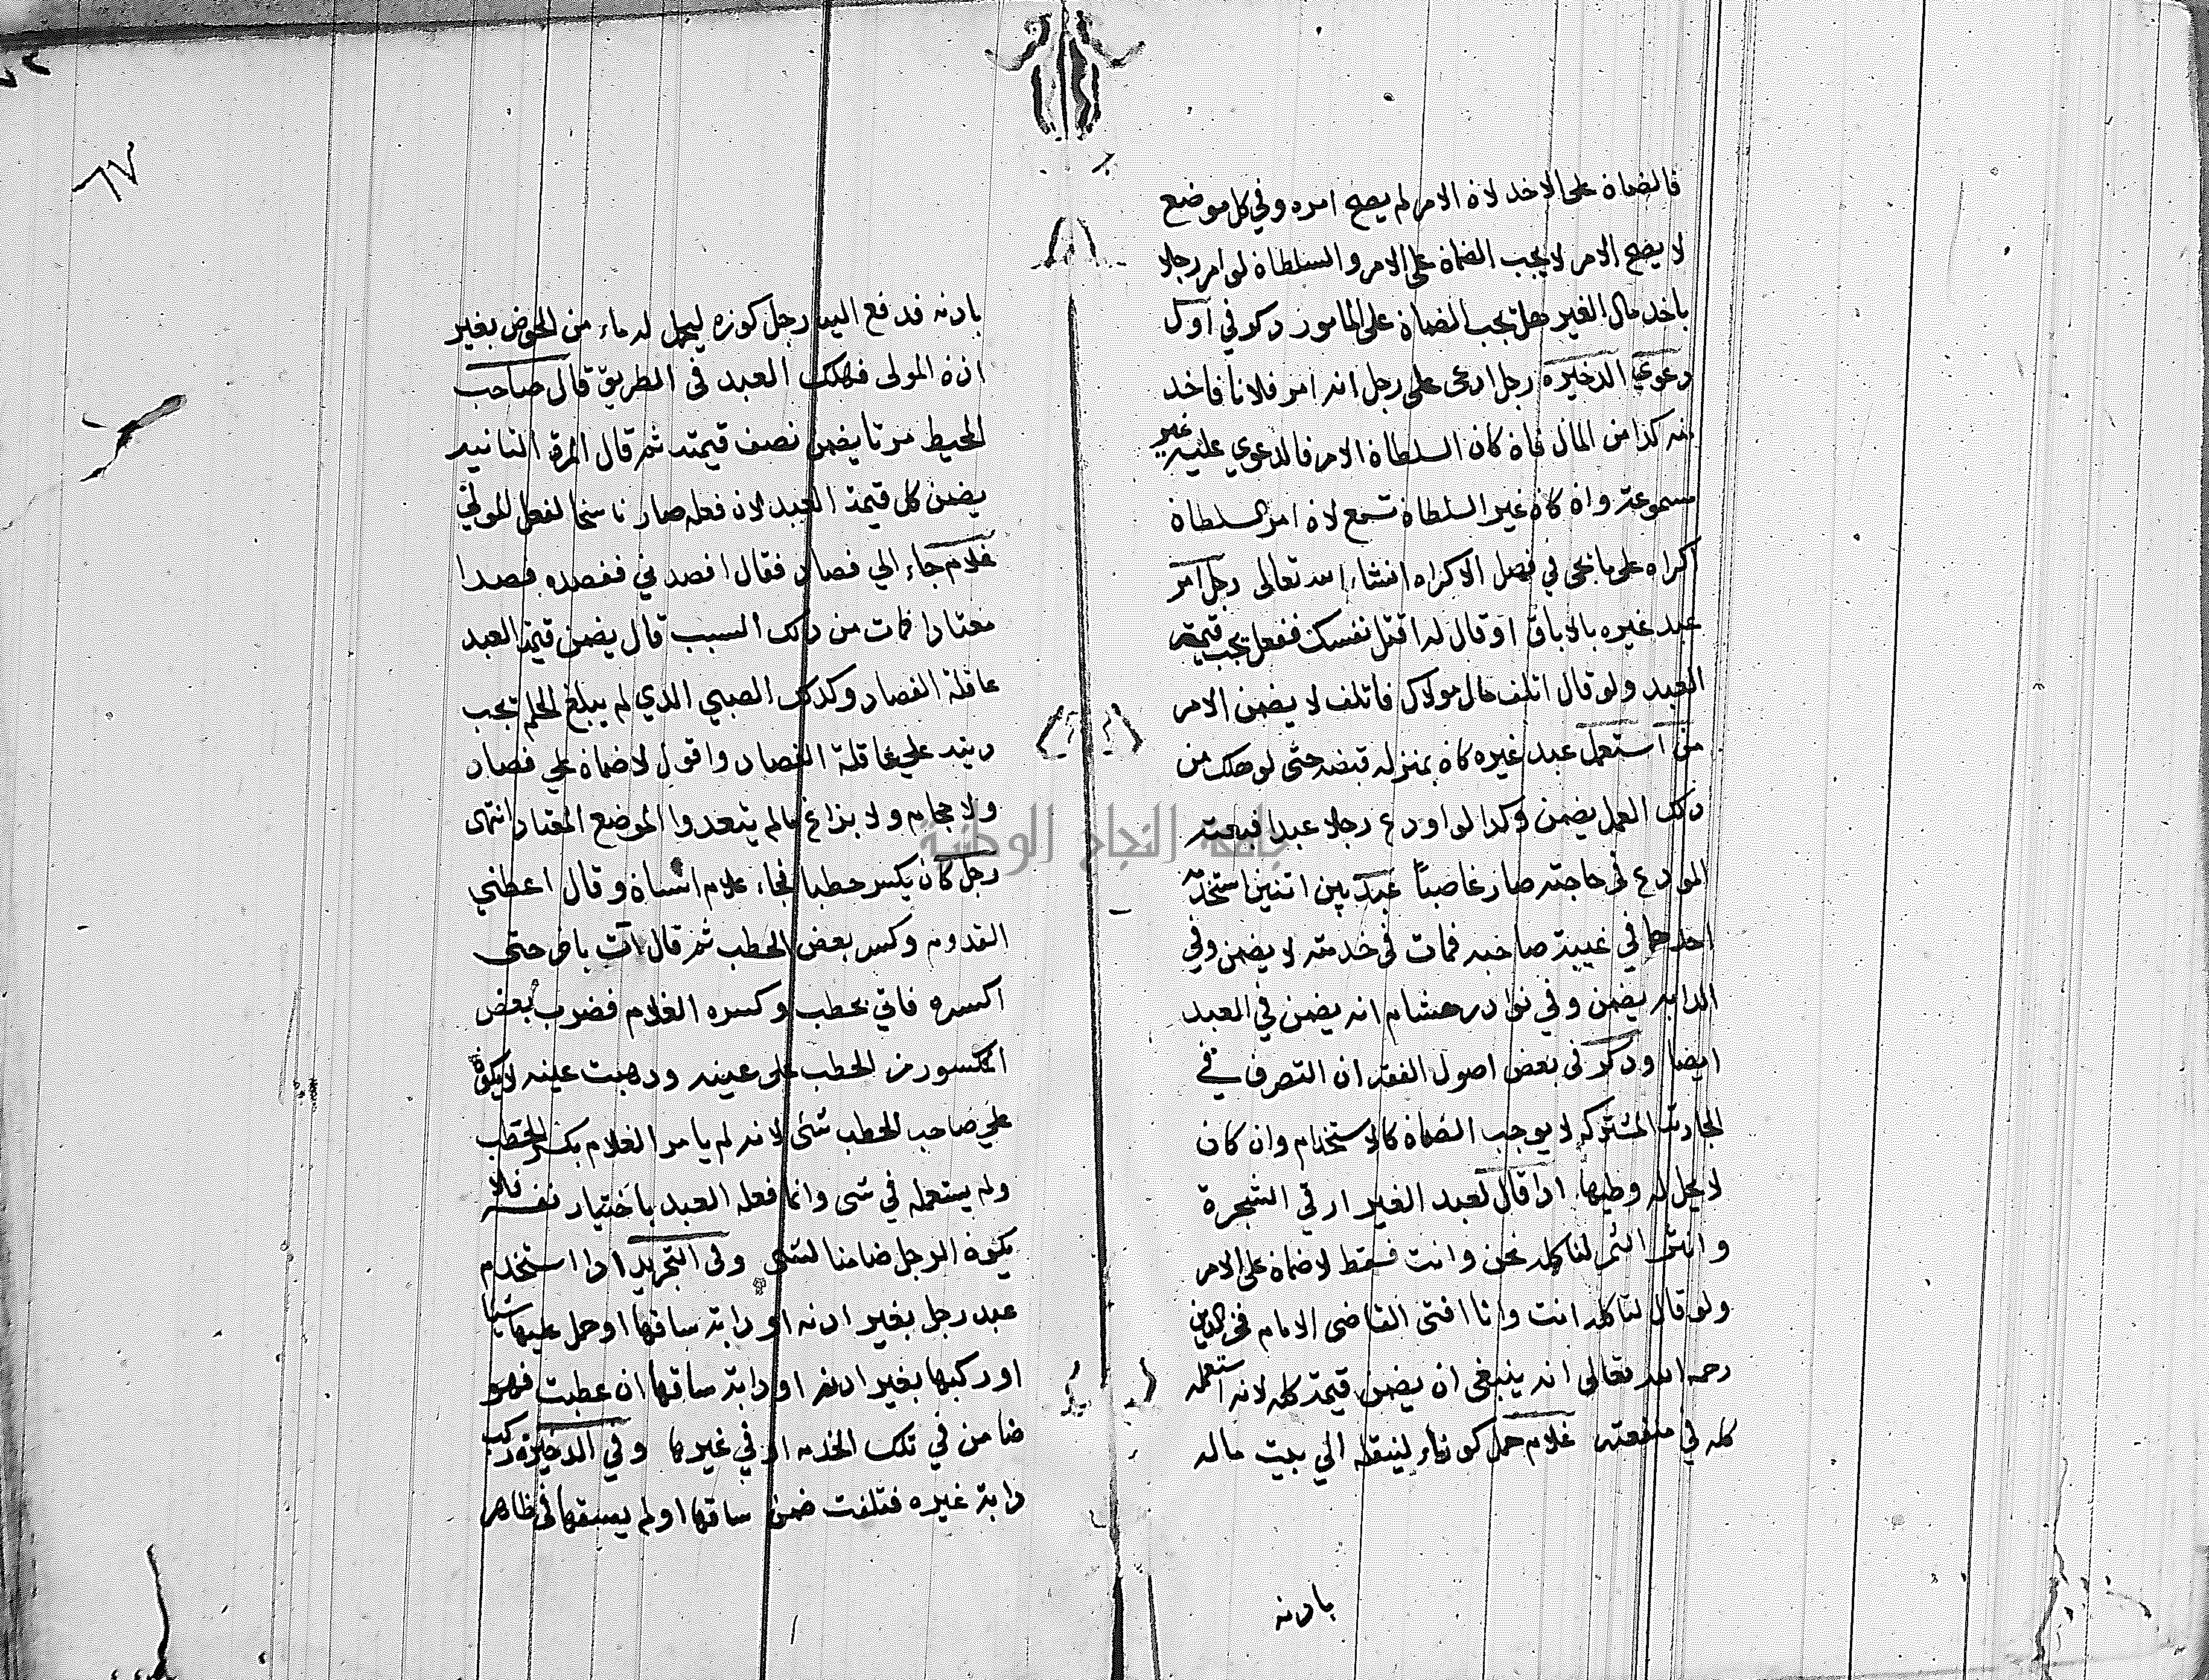 فالضمان على الاخد لان الامر لم يصح امره وفي كل موضع
لا يصح الامر لا يجب الضمان على الامر والسلطان لو امر رجلا
باخد مال الغير هل يجب الضمان على المامور دكر في اول
دعوي الدخيرة رجل ادعى على رجل انه امر فلانا فاخد
منه كدا من المال فان كان السلطان الامر فالدعوي عليه غير
مسموعة وان كان غير السلطان تسمع لان امر السلطان
اكراه على ما يجى في فصل الاكراه انشاء الله تعالى رجل امر
عبد غيره بالاباق او قال له اقتل نفسك ففعل يجب قيمة
العبد ولو قال اتلف مال مولاك فاتلف لا يضمن الامر
من استعمل عبد غيره كان بمنزلة قبضه حتى لو هلك من
دلك العمل يضمن وكدا لو اودع رجلا عبدا فبعثه
المودع في حاجته صار غاصبا عبد بين اتنين استخدمه
احدهما في غيبة صاحبه فمات في خدمته لا يضمن وفي
الدابة يضمن وفي نوادر هشام انه يضمن في العبد
ايضا ودكر في بعض اصول الفقه ان التصرف في
الجارية المشتركة لا يوجب الضمان كالاستخدام وان كان
لا يحل له وطيها ادا قال لعبد الغير ارقي الشجرة
وانثر الثمر لناكله نحن وانت فسقط لا ضمان على الامر
ولو قال لناكله انت وانا افتى القاضى الامام فخر الدين
رحمه الله تعالى انه ينبغي ان يضمن قيمة كله لانه استعمله
كله في منفعته غلام حمل كوز ماء لينقله الي بيت ماله
بادنه
٦٧
بادنه فدفع اليه رجل كوزه ليحمل له ماء من الحوض بغير
ادن المولى فهلك العبد في الطريق قال صاحب
المحيط مرتا يضمن نصف قيمته ثم قال المرة التانية
يضمن كل قيمة العبد لان فعله صار ناسخا لفعل المولي
غلام جاء الي فصاد فقال افصدني ففصده فصدا
معتادا فمات من دلك السبب قال يضمن قيمة العبد
عاقلة الفصاد وكدلك الصبي الدي لم يبلغ الحلم تجب
ديته علي عاقلة الفصاد واقول لا ضمان علي فصاد
ولا حجام ولا بزاغ مالم يتعدوا الموضع المعتاد انتهى
رجل كان يكسر حطبا فجاء غلام انسان وقال اعطني
القدوم وكسر بعض الحطب ثم قال ائت باخر حتى
اكسره فاتي بحطب وكسره الغلام فضرب بعض
المكسور من الحطب على عينه ودهبت عينه لا يكون
علي صاحب الحطب شئ لانه لم يامر الغلام بكسر الحطب
ولم يستعمله في شى وانما فعله العبد باختيار نفسه فلا
يكون الرجل ضامنا لشى وفي التجريد ادا استخدم
عبد رجل بغير ادنه او دابة ساقها او حمل عليها شيا
او ركبها بغير ادنه او دابة ساقها ان عطبت فهو
ضامن في تلك الخدمه او في غيرها وفي الدخيرة ركب
دابة غيره فتلفت ضمن ساقها او لم يسقها في ظاهر
جامعة النجاح الوطنية